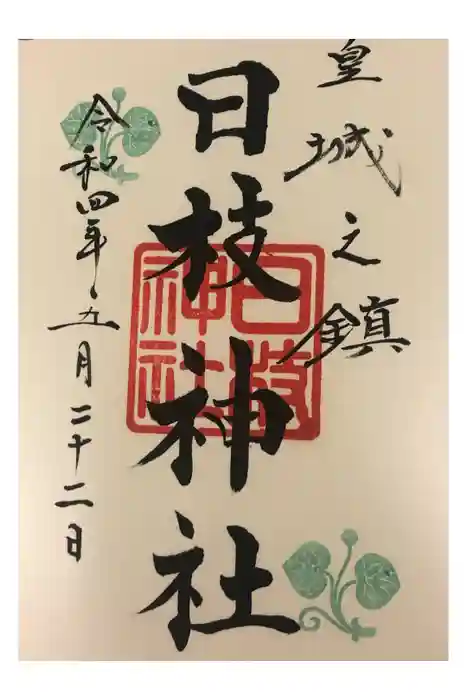 皇城之鎮
日枝神社
日枝
神社
令和四年五月二十二日